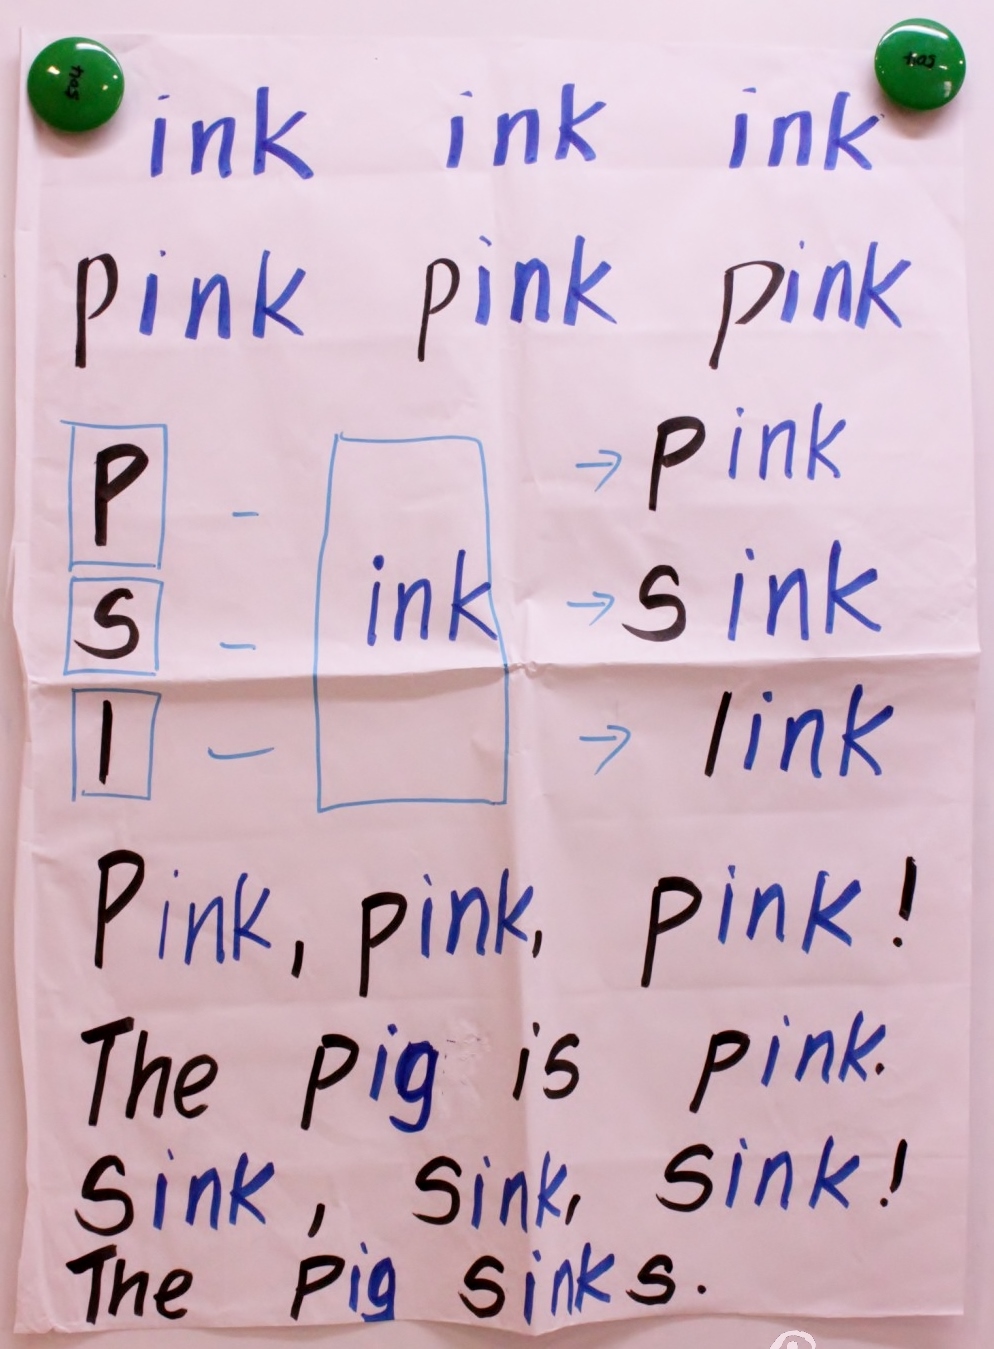 ink ink ink
pink pink pink
P - → pink
S - ink → sink
l - → link
Pink, pink, pink!
The pig is pink.
Sink, sink, sink!
The pig sinks.